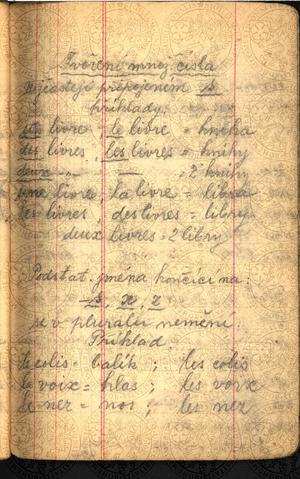 Tvoření množ. čísla
Nejčastěji připojením s
příklady:
un livre, le livre = kniha
des livres, les livres = knihy
deux -"- = 2 knihy
une livre, la livre = libra
les livres, des livres = libry
deux livres = 2 libry
Podstat. jména končící na:
-s, x, z
se v plurálu nemění.
Příklad:
le colis = balík ; les colis
la voix = hlas ; les voix
le nez = nos ; les nez